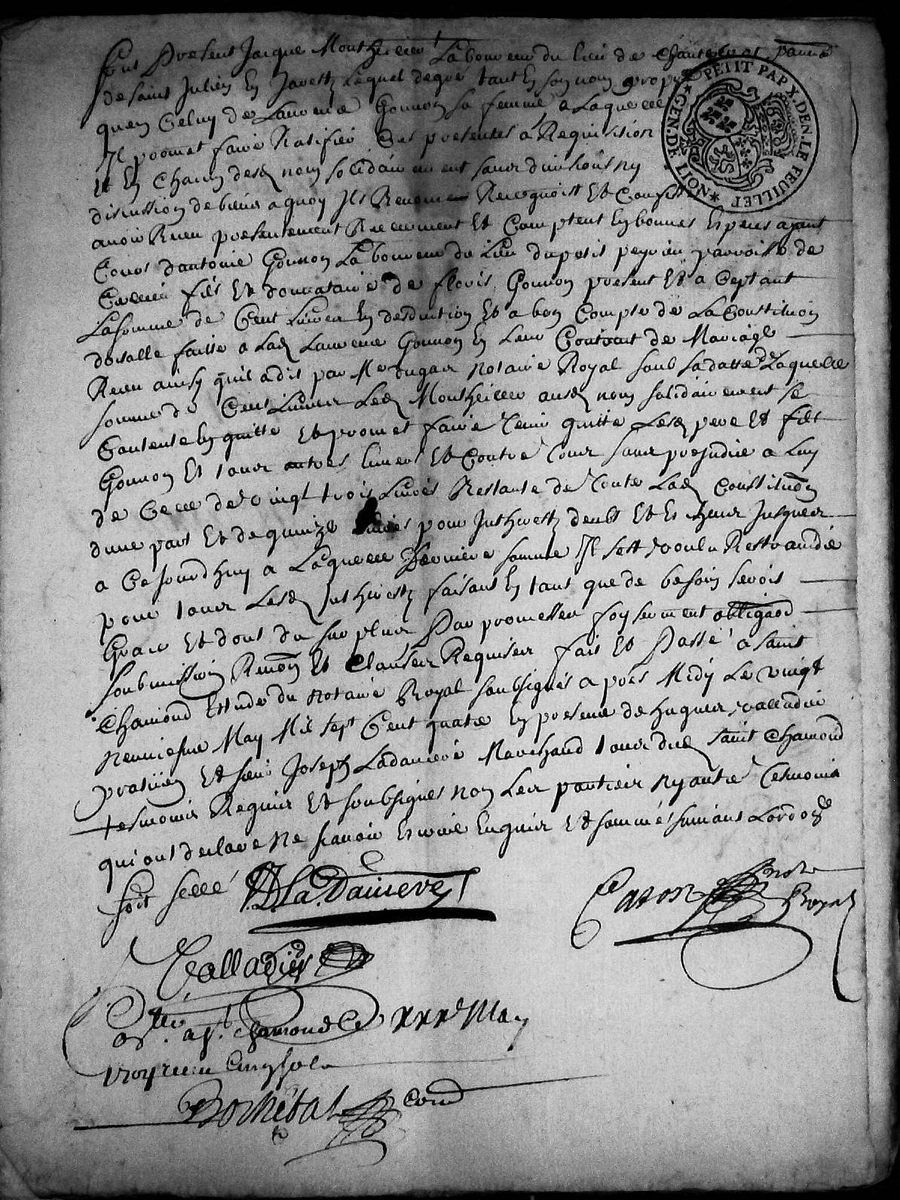 fut Present Jacque Montheillier Laboureur du lieu de Chantelouet parroisse
de Saint Julien En Jarestz Lequel degré tant En son nom propre
quen Celuy de Laurence Gounon sa femme a Laquelle
Il promet faire Ratifier Ces presentes a Requisition
Et En Chacun desd noms solidairement sans division ny
discussion de biens a quoy Ils Renonce Recognoist Et Confesse
avoir Receu presentement Reellement Et Comptent En bonnes Especes ayant
Cours d'antoine Gounon Laboureur du Lieu du petit peyrieu parroisse de
fils Et donnataire de fleuris Gounon present Et acceptant
La somme de Cent Livres En desduction Et a bon Compte de La Constitution
dotalle faitte a Lad Laurence Gounon En Leur Contract de Mariage
Receu ainsy quils a dit par Me dugas notaire Royal soub sa datte Laquelle
somme de Cent Livres Led Montheillier ausd noms solidairement se
Contente En quitte Et promet faire tenir quitte Lesd pere Et fils
Gounon Et tous autres Envers Et Contre tous sans prejudice a Luy
de Celle de vingt trois Livres Restante de toute Lad Constitution
dune part Et de quinze Livres pour Inthrestz deubt Et Escheus Jusques
a Ce Jourdhuy a Laquelle derniere somme Il sest voulu Restraindre
pour tous Lesd Inthrestz faisant En tant que de besoin
Grace Et dont du surplus Par promesses foy serment obligaon
soubmission Renon Et Clauses Requises fait Et Passé a saint
Chamond Estude du notaire Royal soubsignés apres Midy Le vingt
neufiesme May Mil sept Cent quatre En presence de hugues valladier
praticien Et sieur Joseph Ladaviere Marchand tous dud saint Chamond
tesmoins Requis Et soubsignés non Les parties ny autre tesmoins
qui ont declare ne scavoir Escrire Enquis Et sommés suivant Lordon
soit scellé Ladaviere
Caron note
Royal
Valladier
a St Chamond Le XXXe May
Receu Cinq sols
Bochetal Com
NOIT GEN. DE PETIT PAP. X. DEN. LE FEUILLET